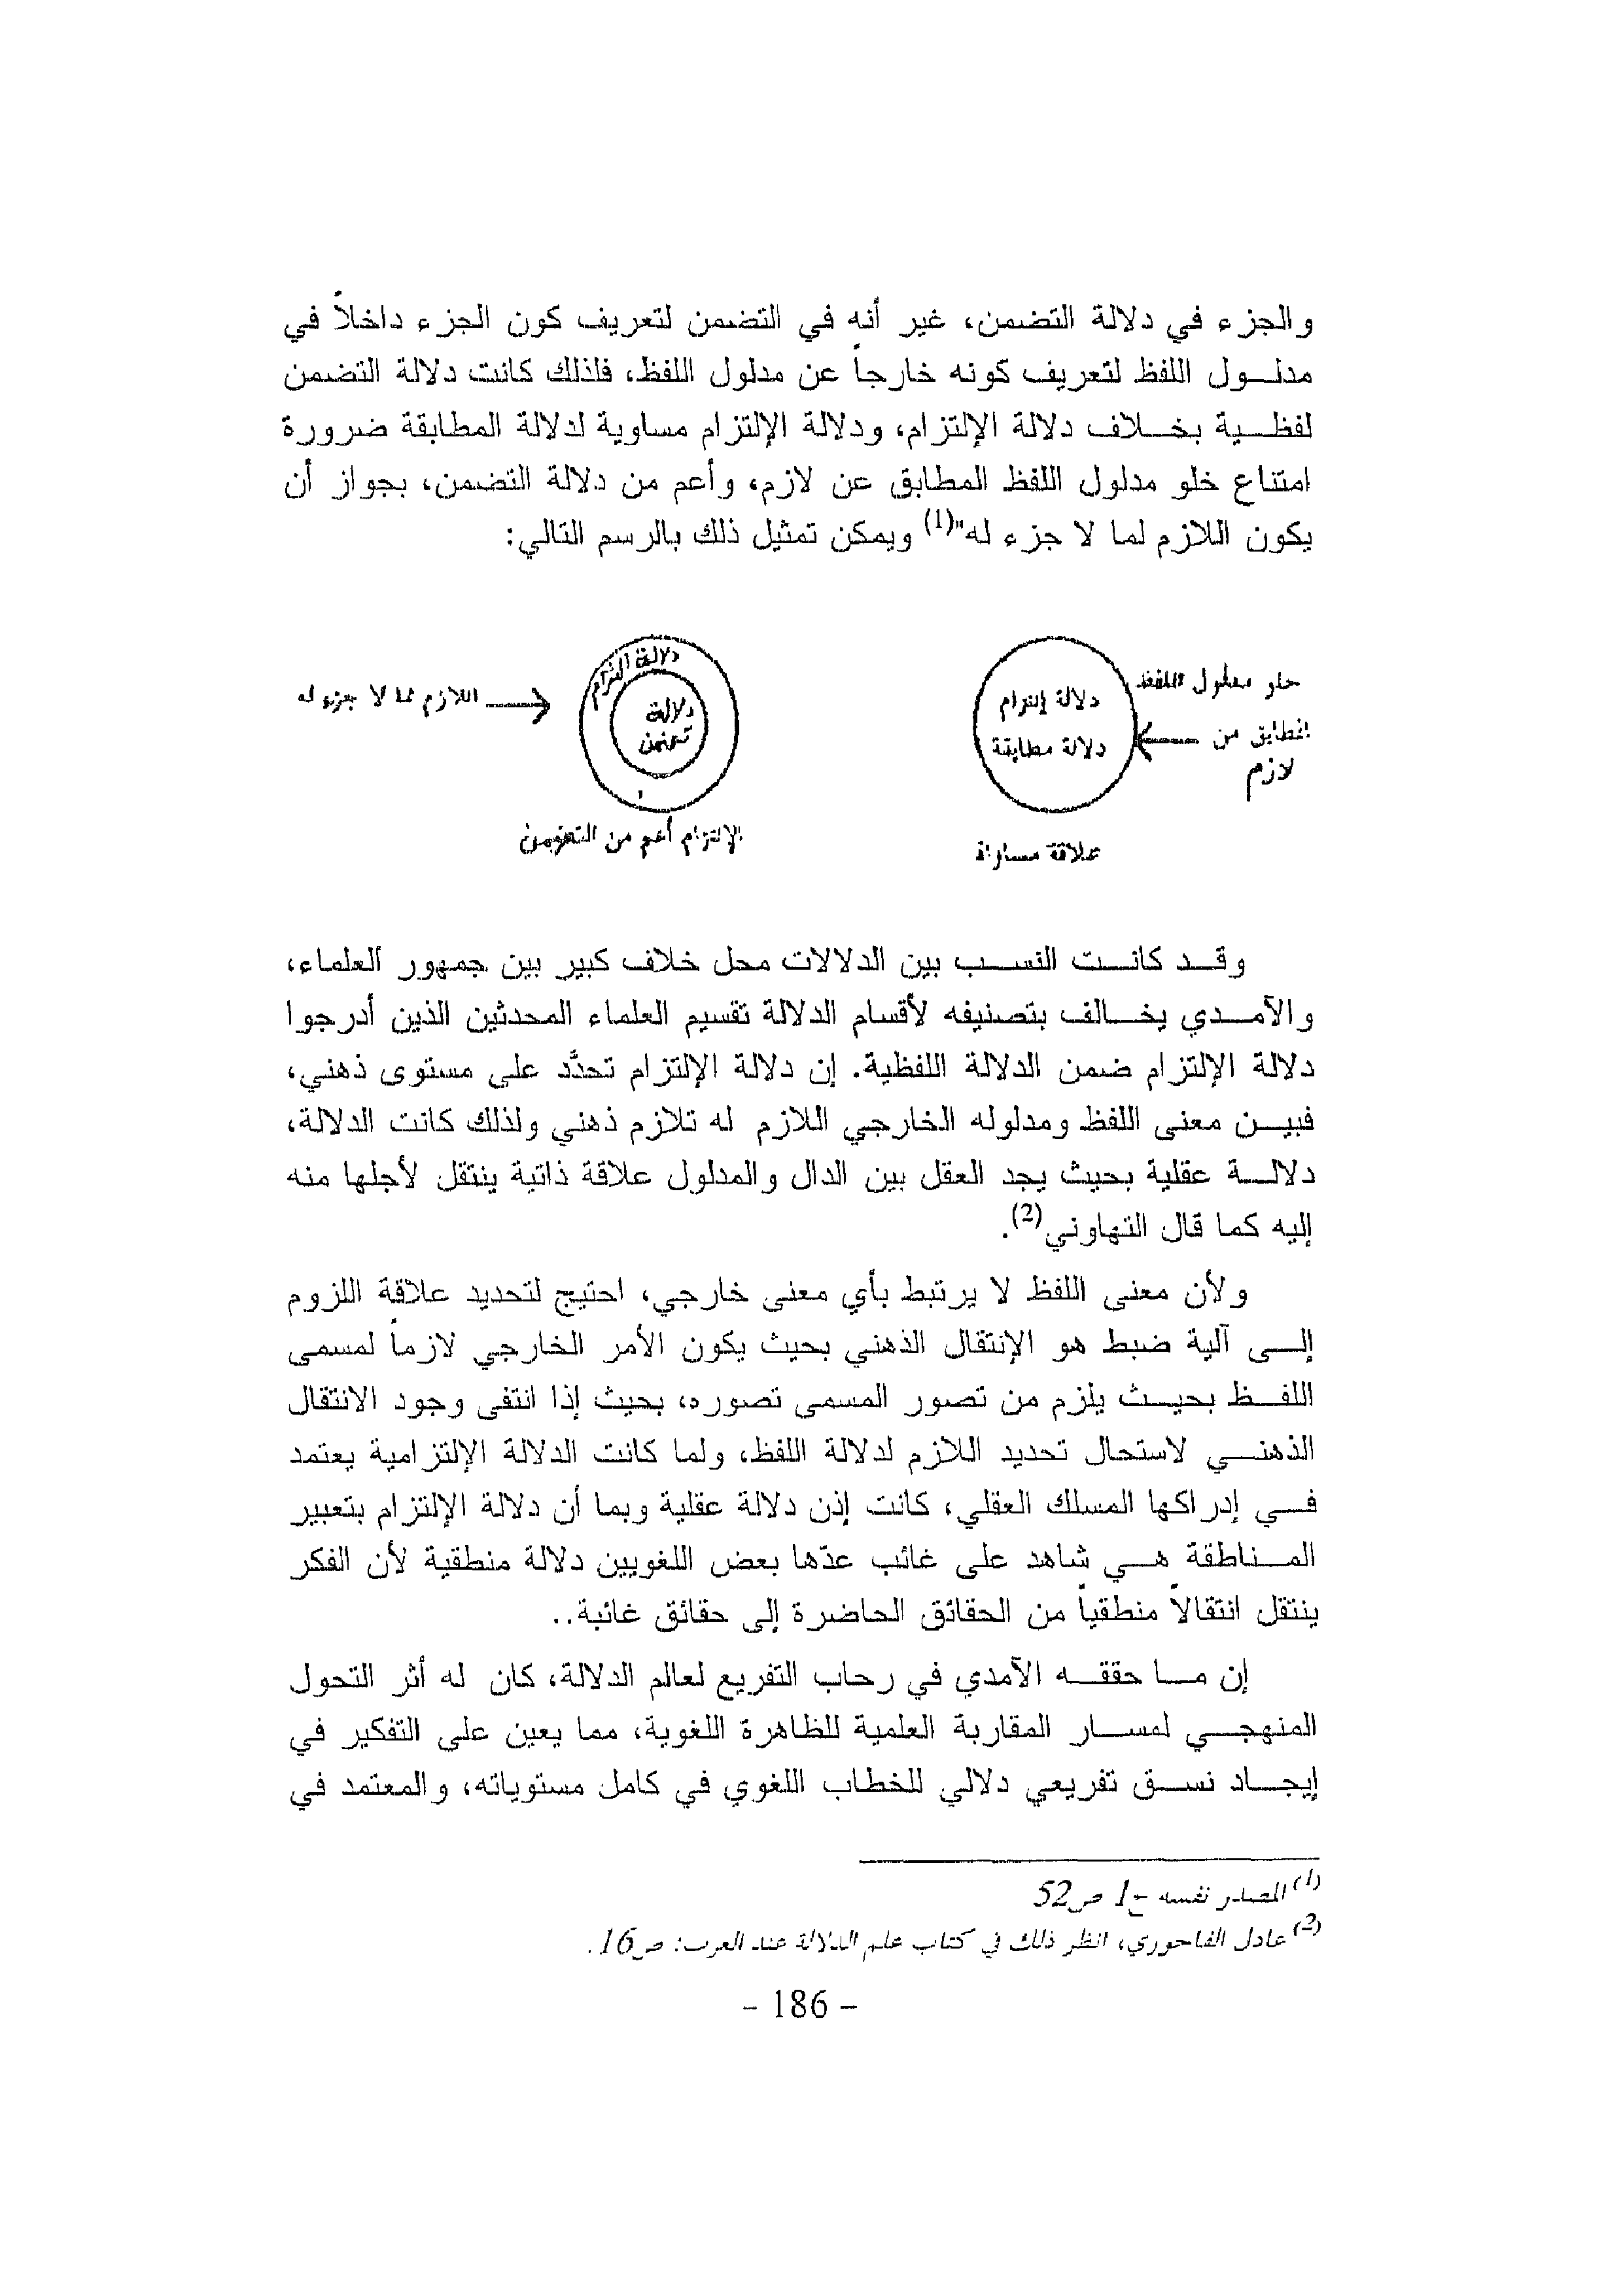 والجزء في دلالة التضمن، غير أنه في التضمن لتعريف كون الجزء داخلاً في
مدلول اللفظ لتعريف كونه خارجاً عن مدلول اللفظ، فلذلك كانت دلالة التضمن
لفظية بخلاف دلالة الإلتزام، ودلالة الإلتزام مساوية لدلالة المطابقة ضرورة
امتناع خلو مدلول اللفظ المطابق عن لازم، وأعم من دلالة التضمن، بجواز أن
يكون اللازم لما لا جزء له"(1) ويمكن تمثيل ذلك بالرسم التالي:
خلو مدلول اللفظ
المطابق من
لازم
دلالة إلتزام
دلالة مطابقة
علاقة مساواة
دلالة التزام
دلالة
تضمن
اللازم لما لا جزء له
الإلتزام أعم من التضمن
وقد كانت النسب بين الدلالات محل خلاف كبير بين جمهور العلماء،
والآمدي يخالف بتصنيفه لأقسام الدلالة تقسيم العلماء المحدثين الذين أدرجوا
دلالة الإلتزام ضمن الدلالة اللفظية. إن دلالة الإلتزام تحدَّد على مستوى ذهني،
فبين معنى اللفظ ومدلوله الخارجي اللازم له تلازم ذهني ولذلك كانت الدلالة،
دلالة عقلية بحيث يجد العقل بين الدال والمدلول علاقة ذاتية ينتقل لأجلها منه
إليه كما قال التهاوني(2).
ولأن معنى اللفظ لا يرتبط بأي معنى خارجي، احتيج لتحديد علاقة اللزوم
إلى آلية ضبط هو الإنتقال الذهني بحيث يكون الأمر الخارجي لازماً لمسمى
اللفظ بحيث يلزم من تصور المسمى تصوره، بحيث إذا انتفى وجود الانتقال
الذهني لاستحال تحديد اللازم لدلالة اللفظ، ولما كانت الدلالة الإلتزامية يعتمد
في إدراكها المسلك العقلي، كانت إذن دلالة عقلية وبما أن دلالة الإلتزام بتعبير
المناطقة هي شاهد على غائب عدّها بعض اللغويين دلالة منطقية لأن الفكر
ينتقل انتقالاً منطقياً من الحقائق الحاضرة إلى حقائق غائبة..
إن ما حققه الآمدي في رحاب التفريع لعالم الدلالة، كان له أثر التحول
المنهجي لمسار المقاربة العلمية للظاهرة اللغوية، مما يعين على التفكير في
إيجاد نسق تفريعي دلالي للخطاب اللغوي في كامل مستوياته، والمعتمد في
(1) المصدر نفسه ج1 ص52
(2) عادل الفاخوري، انظر ذلك في كتاب علم الدلالة عند العرب: ص16.
- 186 -